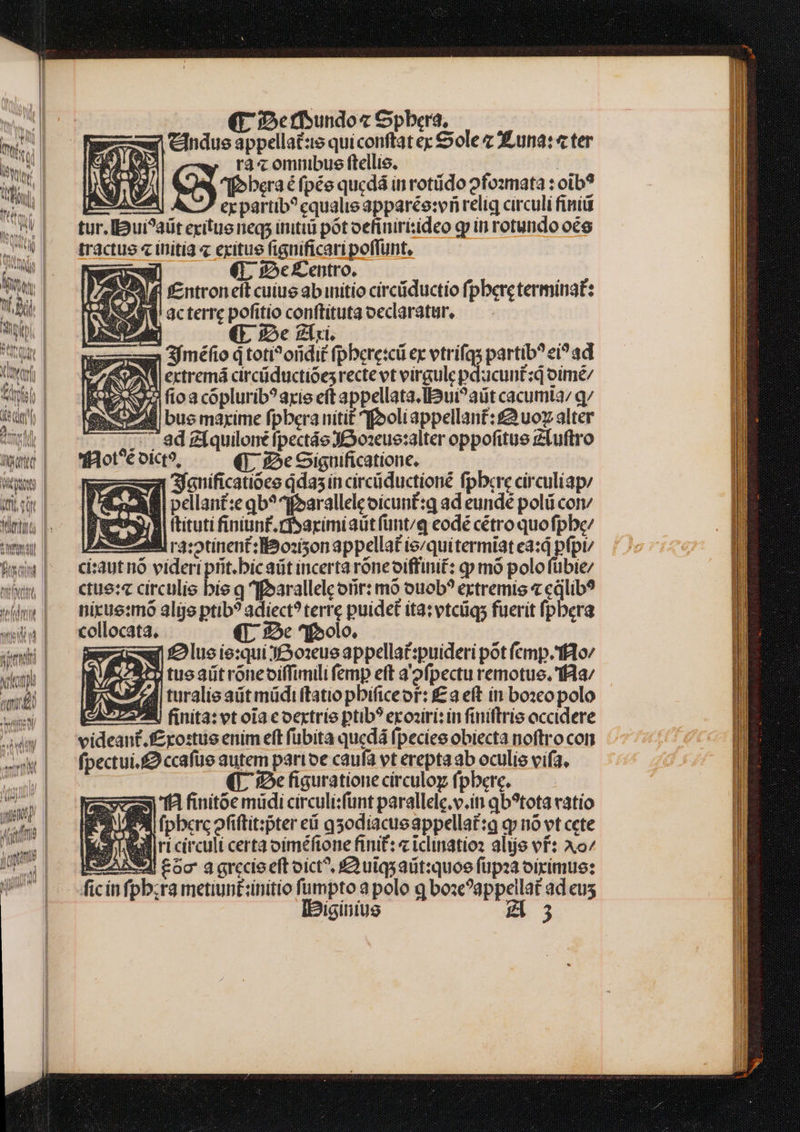 ¶ De Mundo ⁊ Sphera.
Mundus appellat̃: is qui constat ex Sole ⁊ Luna: ⁊ ter
ra ⁊ omnibus stellis.
Sphera ē spēs quędā in rotūdo ꝯformata: oībꝰ
ex partibꝰ equalis apparēs: vñ reliq̃ circuli finiũ
tur. Huiꝰ aūt exitus neqꝫ initiū pōt definiri: ideo ꝙ in rotundo oēs
tractus ⁊ initia ⁊ exitus significari possunt.
¶ De Centro.
Centron est cuius ab initio circūductio spherę terminat̃:
ac terrę positio constituta declaratur.
¶ De Axi.
Dimēsio q̄ totiꝰ oñdit̃ spherę: cū ex vtrisqꝫ partibꝰ eiꝰ ad
extremā circūductiōeꝫ recte vt virgulę ꝓducunt̃: q̄ dimē⸗
sio a cōpluribꝰ axis est appellata. Huiꝰ aūt cacumia⸗ q⸗
bus maxime sphera nitit̃ Poli appellant̃: Quoꝝ alter
ad Aquilonē spectās Boreus: alter oppositus Austro
Notꝰ ē dictꝰ. ¶ De Significatione.
Significatiōes q̄daꝫ in circūductionē spherę circuli ap⸗
pellant̃: e qbꝰ Parallelę dicunt̃: q̄ ad eundē polū con⸗
stituti finiunt̃. Maximi aūt sunt⸗ q̄ eodē cētro quo sphę⸗
ra: ꝯtinent̃: Horizon appellat̃ is⸗ qui termīat ea: q̄ ꝑspi⸗
ci: aut nō videri pn̄t. hic aūt incerta rōne diffinit̃: ꝙ mō polo subie⸗
ctus: ⁊ circulis his q̄ Parallelę dn̄r: mō duobꝰ extremis ⁊ eq̄libꝰ
nixus: mō alijs ptibꝰ adiectꝰ terrę puidet̃ ita: vtcūqꝫ fuerit sphera
collocata. ¶ De Polo.
Polus is: qui Boreus appellat̃: puideri pōt semp. No⸗
tus aūt rōne dissimili semp est a ꝯspectu remotus. Na⸗
turalis aūt mūdi statio phisice dr̄: Ea est in boreo polo
finita: vt oīa e dextris ptibꝰ exoriri: in sinistris occidere
videant̃. Exortus enim est subita quędā species obiecta nostro con
spectui. Occasus autem pari de causa vt erepta ab oculis visa.
¶ De figuratione circuloꝝ spherę.
In finitōe mūdi circuli: sunt parallelę .v. in qbꝰ tota ratio
spherę ꝯsistit: p̄ter eū q zodiacus appellat̃: q ꝙ nō vt cęte
ri circuli certa dimēsione finit̃: ⁊ īclinatior alijs vr̄: λο⸗
ξόσ a gręcis est dictꝰ. Quiqꝫ aūt: quos supra diximus:
sic in sphęra metiunt̃: initio sumpto a polo q boreꝰ appellat̃ ad euꝫ
Higinius A 3